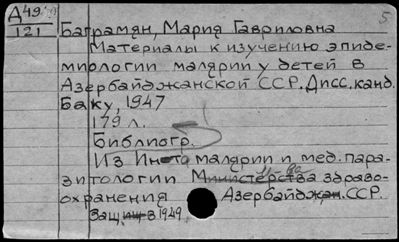 Д49
121
5
Баграмян, Мария Гавриловна
Материалы к изучению эпиде-
миологии малярии у детей в
Азербайджанской ССР. Дисс. канд.
Баку, 1947
179 л.
Библиогр.
Из Инста малярии и мед. пара-
зитологии Министерства здраво-
охранения Азербайджан. ССР.
Защ. в 1949.